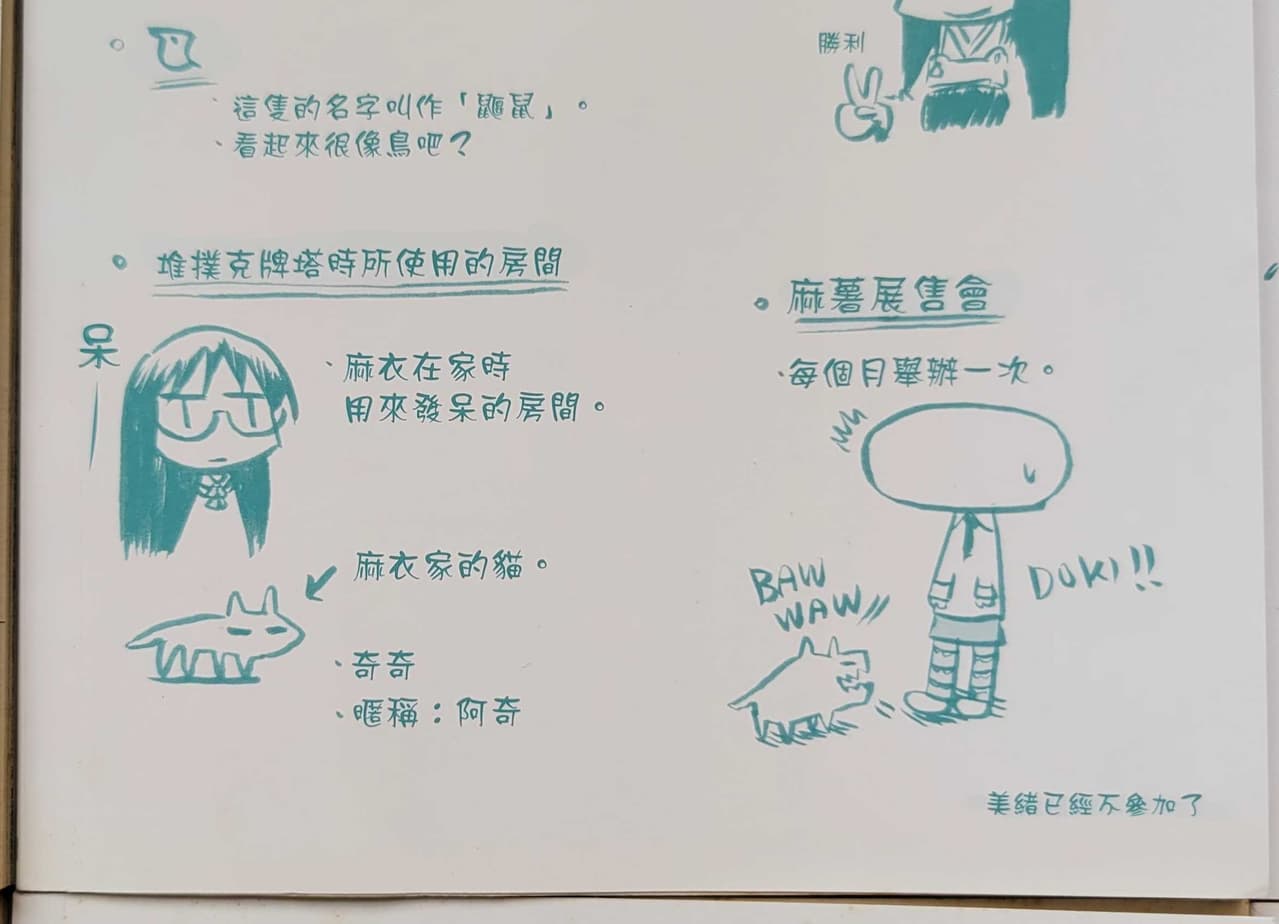 這隻的名字叫作「鼯鼠」。
看起來很像鳥吧？
堆撲克牌塔時所使用的房間
呆
麻衣在家時
用來發呆的房間。
麻衣家的貓。
奇奇
暱稱：阿奇
勝利
麻薯展售會
每個月舉辦一次。
BAW
WAW
DOKI!!
美緒已經不參加了